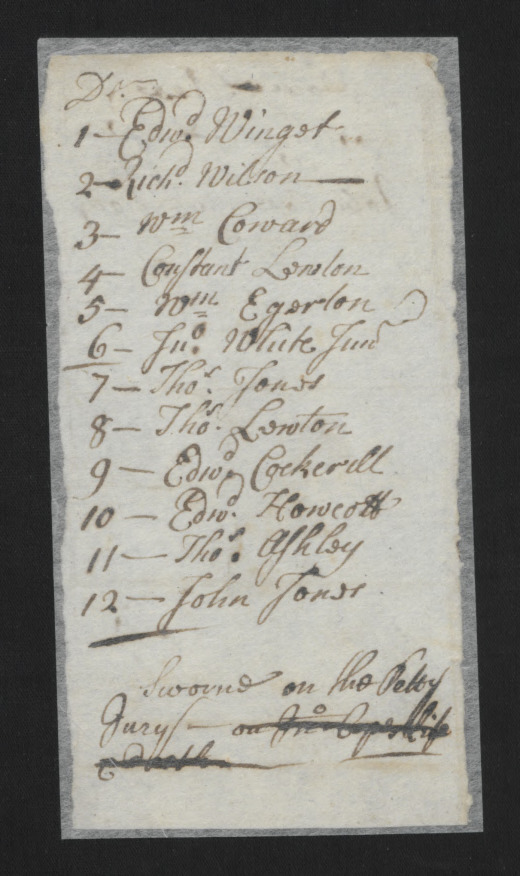 1 – Edwd Winget
2 – Richd Wilson
3 – Wm Coward
4 – Constant Lewton
5 – Wm Egerton
6 – Jno White Junr
7 – Thos Jones
8 – Thos Lewton
9 – Edwd Cockerill
10 – Edwd Howcott
11 – Thos Ashley
12 – John Jones
Sworne on the Petty
Jury – on Jno